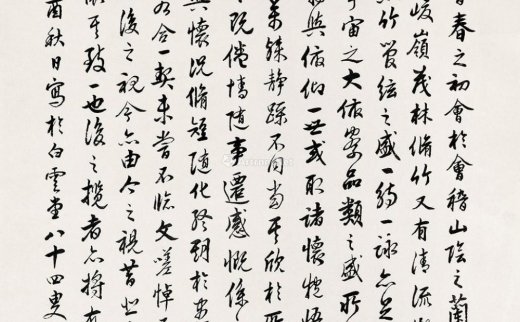 春之初會於會稽山陰之蘭
峻嶺茂林脩竹又有清流
竹管絃之盛一觴一詠亦足
宙之大俯察品類之盛所
與俯仰一世或取諸懷抱悟
萬殊靜躁不同當其欣於所
所既倦情隨事遷感慨係
興懷況脩短隨化終期於
若合一契未嘗不臨文嗟悼
後之視今亦由今之視昔悲
懷其致一也後之攬者亦將有
酉秋日寫於白雲堂八十四叟